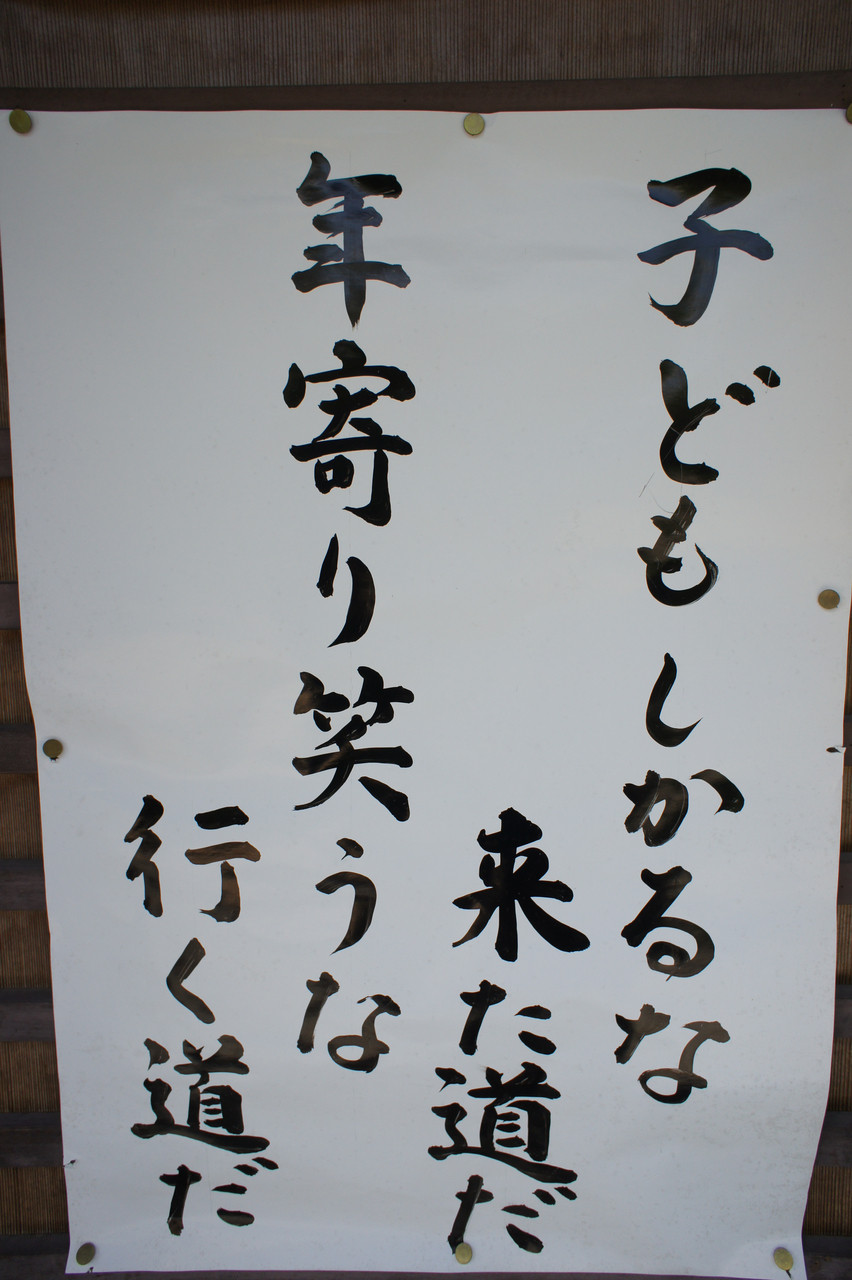 子どもしかるな
来た道だ
年寄り笑うな
行く道だ